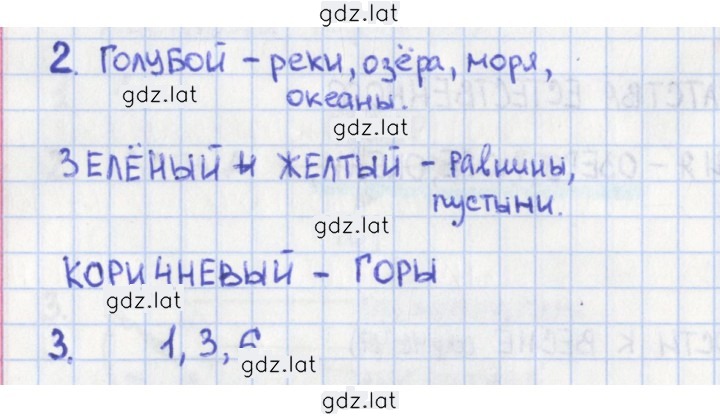 gdz.lat
2. ГОЛУБОЙ – реки, озёра, моря,
gdz.lat
океаны.
gdz.lat
ЗЕЛЁНЫЙ И ЖЕЛТЫЙ – равнины,
пустыни.
gdz.lat
КОРИЧНЕВЫЙ – ГОРЫ
gdz.lat
3. 1, 3,
gdz.lat
gdz.lat